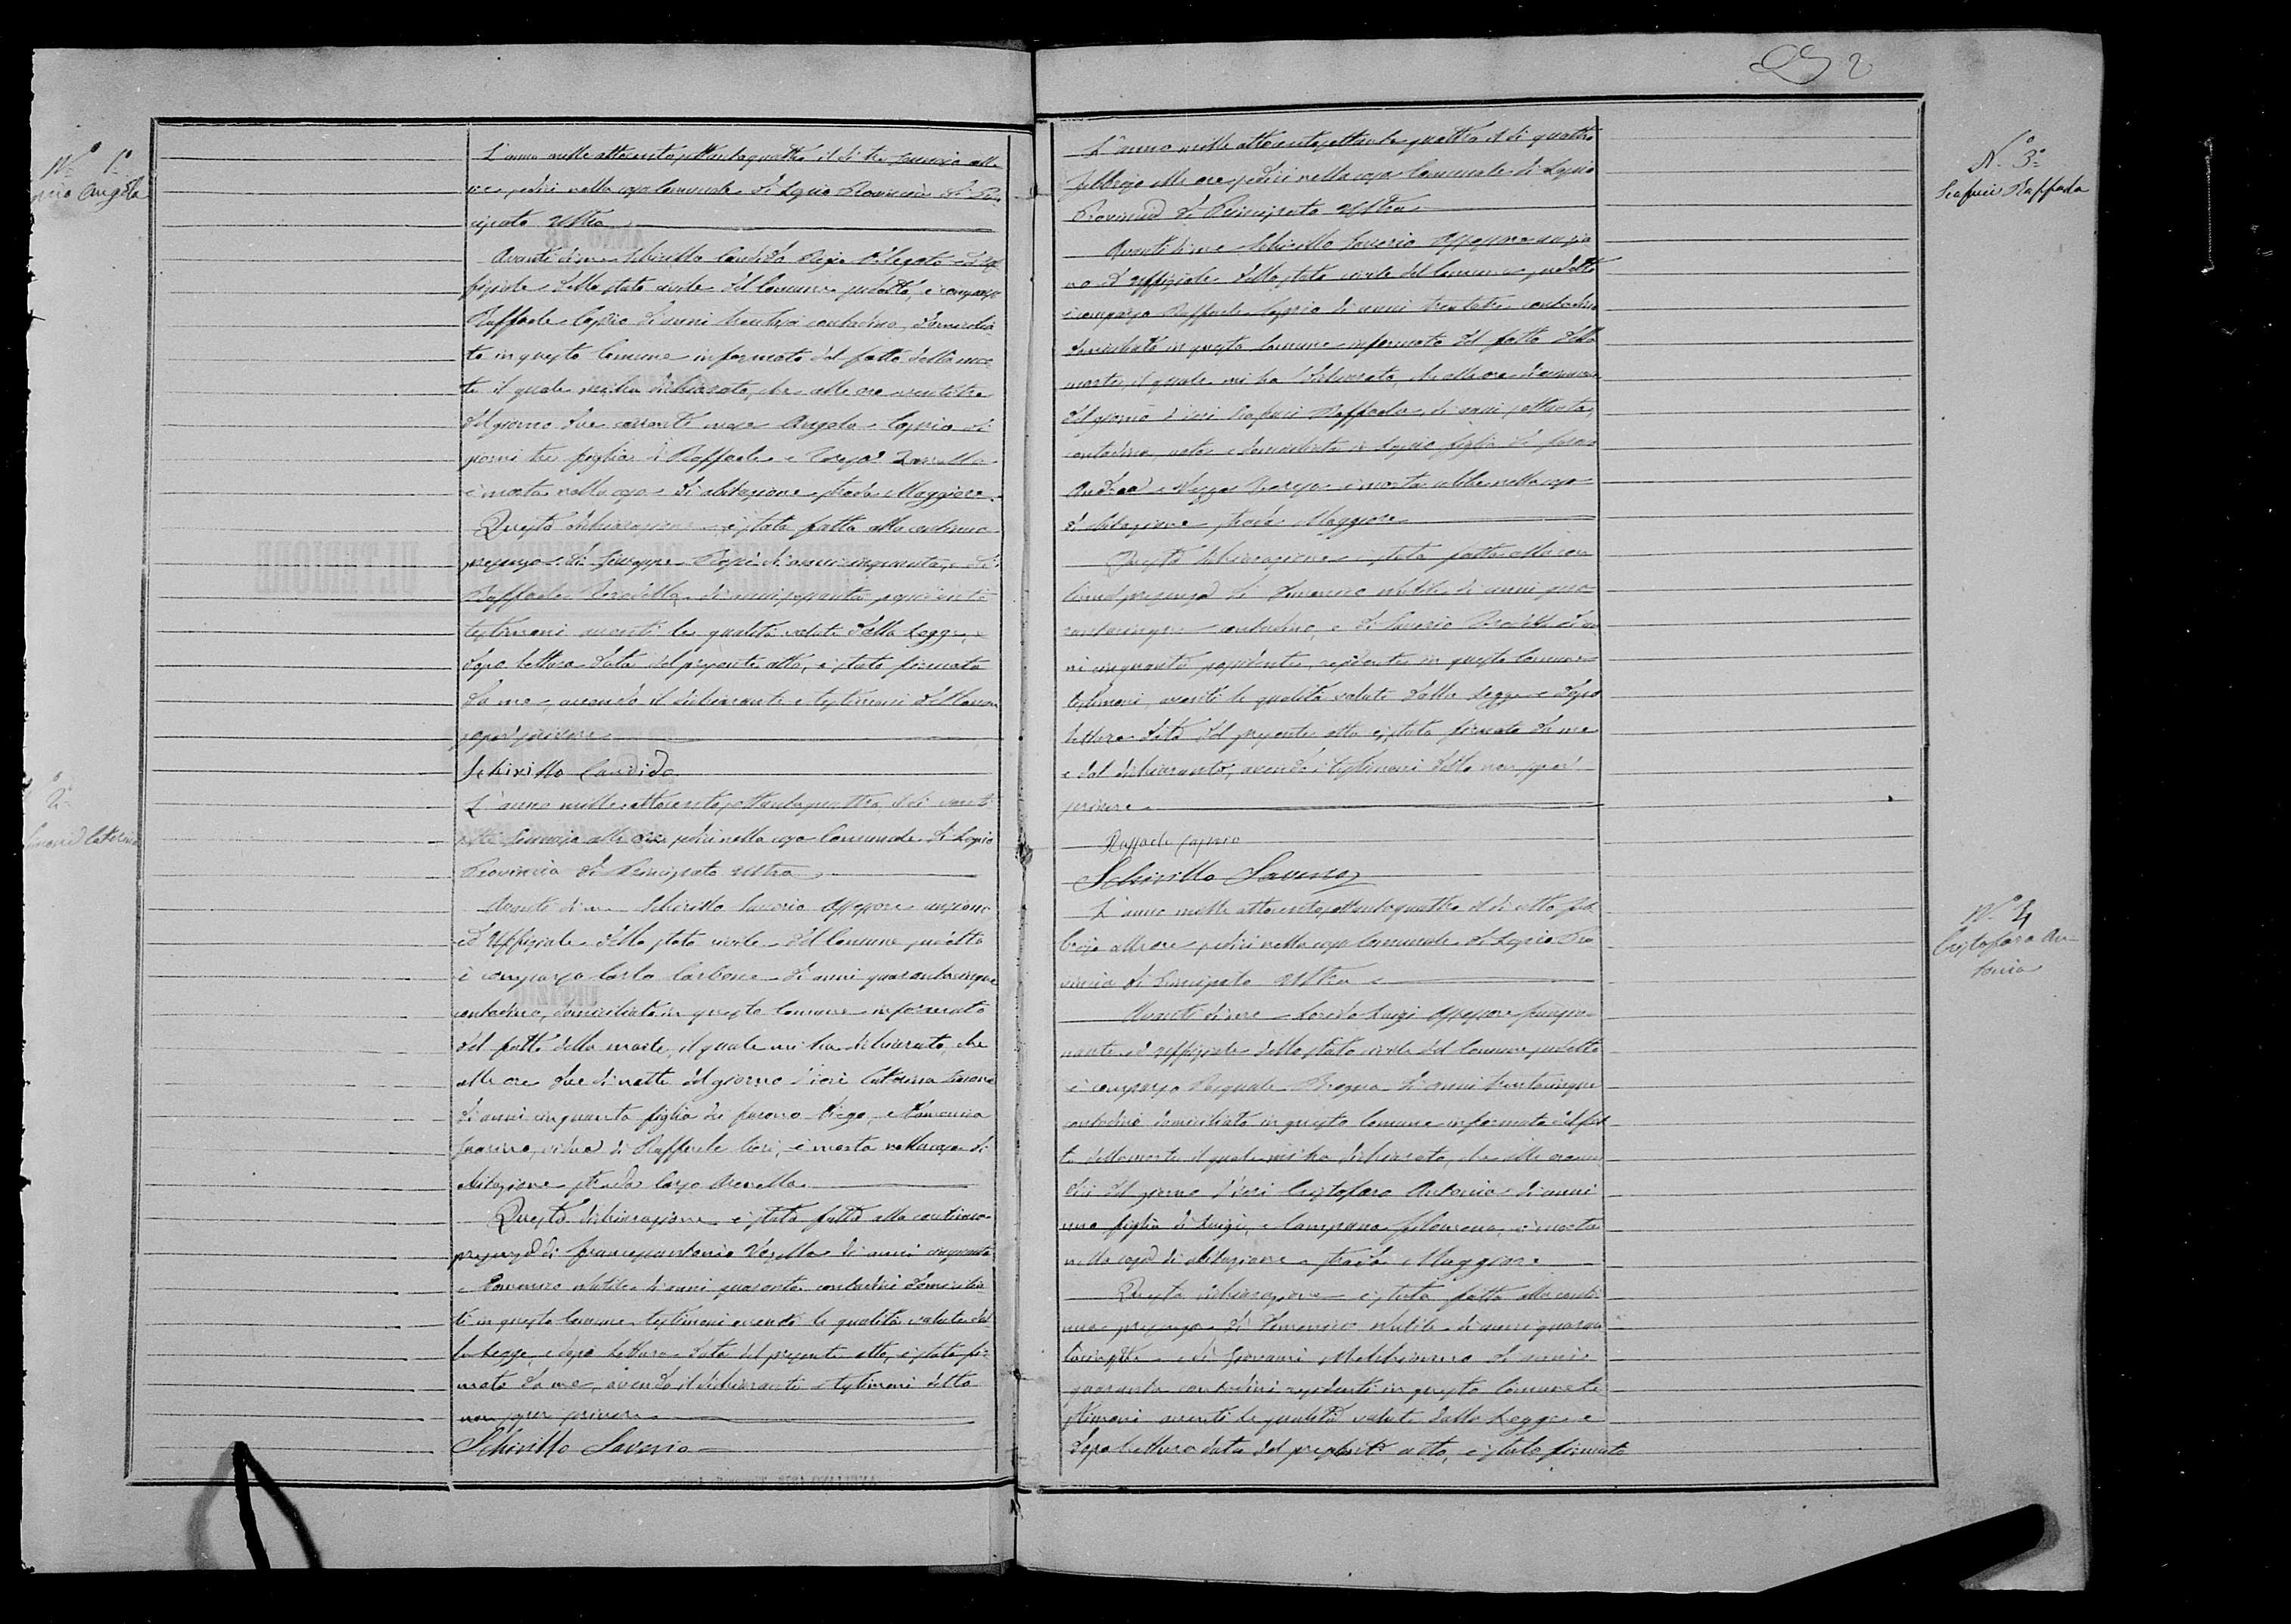 2
N.° 1.°
Angela
L'anno mille ottocento settantaquattro il dì tre Gennaio alle
ore sedici nella casa Comunale di Lapio Provincia di Prin
cipato Ultra
Avanti di me Schirillo Candido Regio Delegato ed Uf
fiziale dello stato civile del Comune sudetto, è comparso
Raffaele Caprio di anni trentasei contadino, domicilia
to in questo Comune informato del fatto della mor
te il quale mi ha dichiarato, che alle ore ventitre
del giorno due corrente mese Angela Caprio di
giorni tre figlia di Raffaele e
è morta nella casa di abitazione strada Maggiore.
Questa dichiarazione è stata fatta alla continua
presenza di Giuseppe di anni cinquanta, e di
Raffaele di anni sessanta
testimoni aventi le qualità volute dalla Legge, e
dopo lettura data del presente atto, è stato firmato
da me, avendo il dichiarante e testimoni detto non
saper scrivere
Schirillo Candido
2.°
Caterina
L'anno mille ottocento settantaquattro, il dì venti
sette Gennaio alle ore sedici nella casa Comunale di Lapio
Provincia di Principato Ultra
Avanti di me Schirillo Saverio Assessore anziano
ed Uffiziale dello stato civile del Comune sudetto
è comparso Carlo Carbone di anni quarantacinque
contadino, domiciliato in questo Comune informato
del fatto della morte, il quale mi ha dichiarato, che
alle ore due di notte del giorno d'ieri Caterina
di anni cinquanta figlia di Diego, e Domenica
vedova di Raffaele è morta nella casa di
abitazione strada Largo
Questa dichiarazione è stata fatta alla continua
presenza di Francescantonio di anni cinquanta
e Domenico di anni quaranta contadini domicilia
ti in questo Comune, testimoni aventi le qualità volute dal
la Legge, e dopo lettura data del presente atto, è stato fir
mato da me, avendo il dichiarante e testimoni detto
non saper scrivere
Schirillo Saverio
N.° 3.°
Raffaela
L'anno mille ottocento settantaquattro il dì quattro
Febbraio alle ore sedici nella casa Comunale di Lapio
Provincia di Principato Ultra
Avanti di me Schirillo Saverio Assessore anzia
no ed Uffiziale dello stato civile del Comune sudetto
è comparso Raffaele Caprio di anni trentatre contadino
domiciliato in questo Comune informato del fatto della
morte, il quale mi ha dichiarato, che alle ore
del giorno d'ieri Raffaela di anni settanta,
contadina nata e domiciliata in Lapio figlia di
Andrea e è morta nubile nella casa
di abitazione strada Maggiore
Questa dichiarazione è stata fatta alla con
tinua presenza di Domenico di anni qua
rantacinque contadino, e di Saverio di an
ni cinquanta possidente, residenti in questo Comune
testimoni, aventi le qualità volute dalla Legge e dopo
lettura data del presente atto è stato firmato da me
e dal dichiarante, avendo i testimoni detto non saper
scrivere
Raffaele Caprio
Schirillo Saverio
N.° 4
Cristofaro An-
tonia
L'anno mille ottocento settantaquattro il dì otto Feb
braio alle ore sedici nella casa Comunale di Lapio Pro
vincia di Principato Ultra
Avanti di me Luigi Assessore funzio
nante ed Uffiziale dello stato civile del Comune sudetto
è comparso Pasquale di anni trentacinque
contadino domiciliato in questo Comune informato del fat
to della morte, il quale mi ha dichiarato, che alle ore
del giorno d'ieri Cristofaro Antonia di anni
uno figlia di Luigi, e Campana Filomena, è morta
nella casa di abitazione strada Maggiore
Questa dichiarazione è stata fatta alla conti
nua presenza di Domenico di anni quaran
tacinque e di Giovanni di anni
quaranta contadini residenti in questo Comune te
stimoni aventi le qualità volute dalla Legge e
dopo lettura data del presente atto, è stato firmato